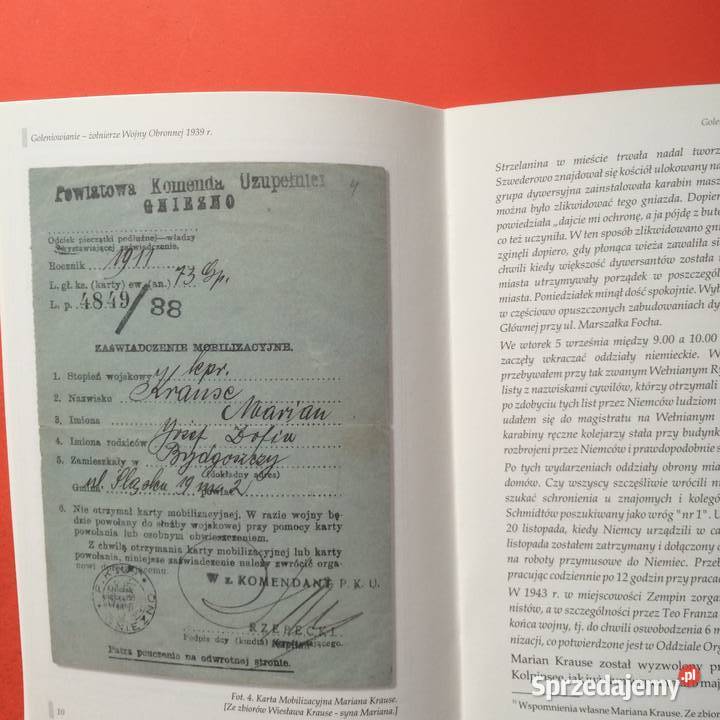 Goleniowianie – żołnierze Wojny Obronnej 1939 r.
Powiatowa Komenda Uzupełnień
GNIEZNO
4
Odcisk pieczątki podłużnej—władzy
wystawiającej zaświadczenie.
Rocznik 1911
L. gł. ks. (karty) ew. (an.) 73 Gp.
L. p. 4849/38
ZAŚWIADCZENIE MOBILIZACYJNE.
1. Stopień wojskowy kpr.
2. Nazwisko Krause
3. Imiona Marian
4. Imiona rodziców Józef
5. Zamieszkały w Bydgoszczy
(dokładny adres)
Gmina ul. Śląska 19 m 2 powiat
6. Nie otrzymał karty mobilizacyjnej. W razie wojny bę-
dzie powołany do służby wojskowej przy pomocy karty
powołania lub osobnym obwieszczeniem.
Z chwilą otrzymania karty mobilizacyjnej lub karty
powołania, niniejsze zaświadczenie należy zwrócić orga-
nowi doręczającemu.
W z. KOMENDANT P. K. U.
RZEPECKI
Kapitan
Podpis
Patrz pouczenie na odwrotnej stronie.
Fot. 4. Karta Mobilizacyjna Mariana Krause.
[Ze zbiorów Wiesława Krause - syna Mariana.]
10
Gole
Strzelanina w mieście trwała nadal tworz
Szwederowo znajdował się kościół ulokowany na
grupa dywersyjna zainstalowała karabin masz
można było zlikwidować tego gniazda. Dopier
powiedziała „dajcie mi ochronę, a ja pójdę z bute
co też uczyniła. W ten sposób zlikwidowano gni
zginęli dopiero, gdy płonąca wieża zawaliła si
chwili kiedy większość dywersantów została
miasta utrzymywały porządek w poszczegól
miasta. Poniedziałek minął dość spokojnie. Wyb
w częściowo opuszczonych zabudowaniach dy
Głównej przy ul. Marszałka Focha.
We wtorek 5 września między 9.00 a 10.00
zaczęły wkraczać oddziały niemieckie. W
przebywałem przy tak zwanym Wełnianym Ry
listy z nazwiskami cywilów, którzy otrzymali
po zdobyciu tych list przez Niemców ludziom
udałem się do magistratu na Wełnianym
karabiny ręczne kolejarzy stała przy budynk
rozbrojeni przez Niemców i prawdopodobnie s
Po tych wydarzeniach oddziały obrony mia
domów. Czy wszyscy szczęśliwie wrócili ni
szukać schronienia u znajomych i kolegó
Schmidtów poszukiwany jako wróg "nr 1". U
20 listopada, kiedy Niemcy urządzili w ca
listopada zostałem zatrzymany i dołączony d
na roboty przymusowe do Niemiec. Przeb
pracując codziennie po 12 godzin przy praca
W 1943 r. w miejscowości Zempin zorgan
nistów, a w szczególności przez Teo Franza
końca wojny, tj. do chwili oswobodzenia 6 m
nizacji, co potwierdzone jest w Oddziale Orga
Marian Krause został wyzwolony pr
Kolpinsee, jak już
11 Wspomnienia własne Mariana Krause. Ze zbior
Sprzedajemy.pl